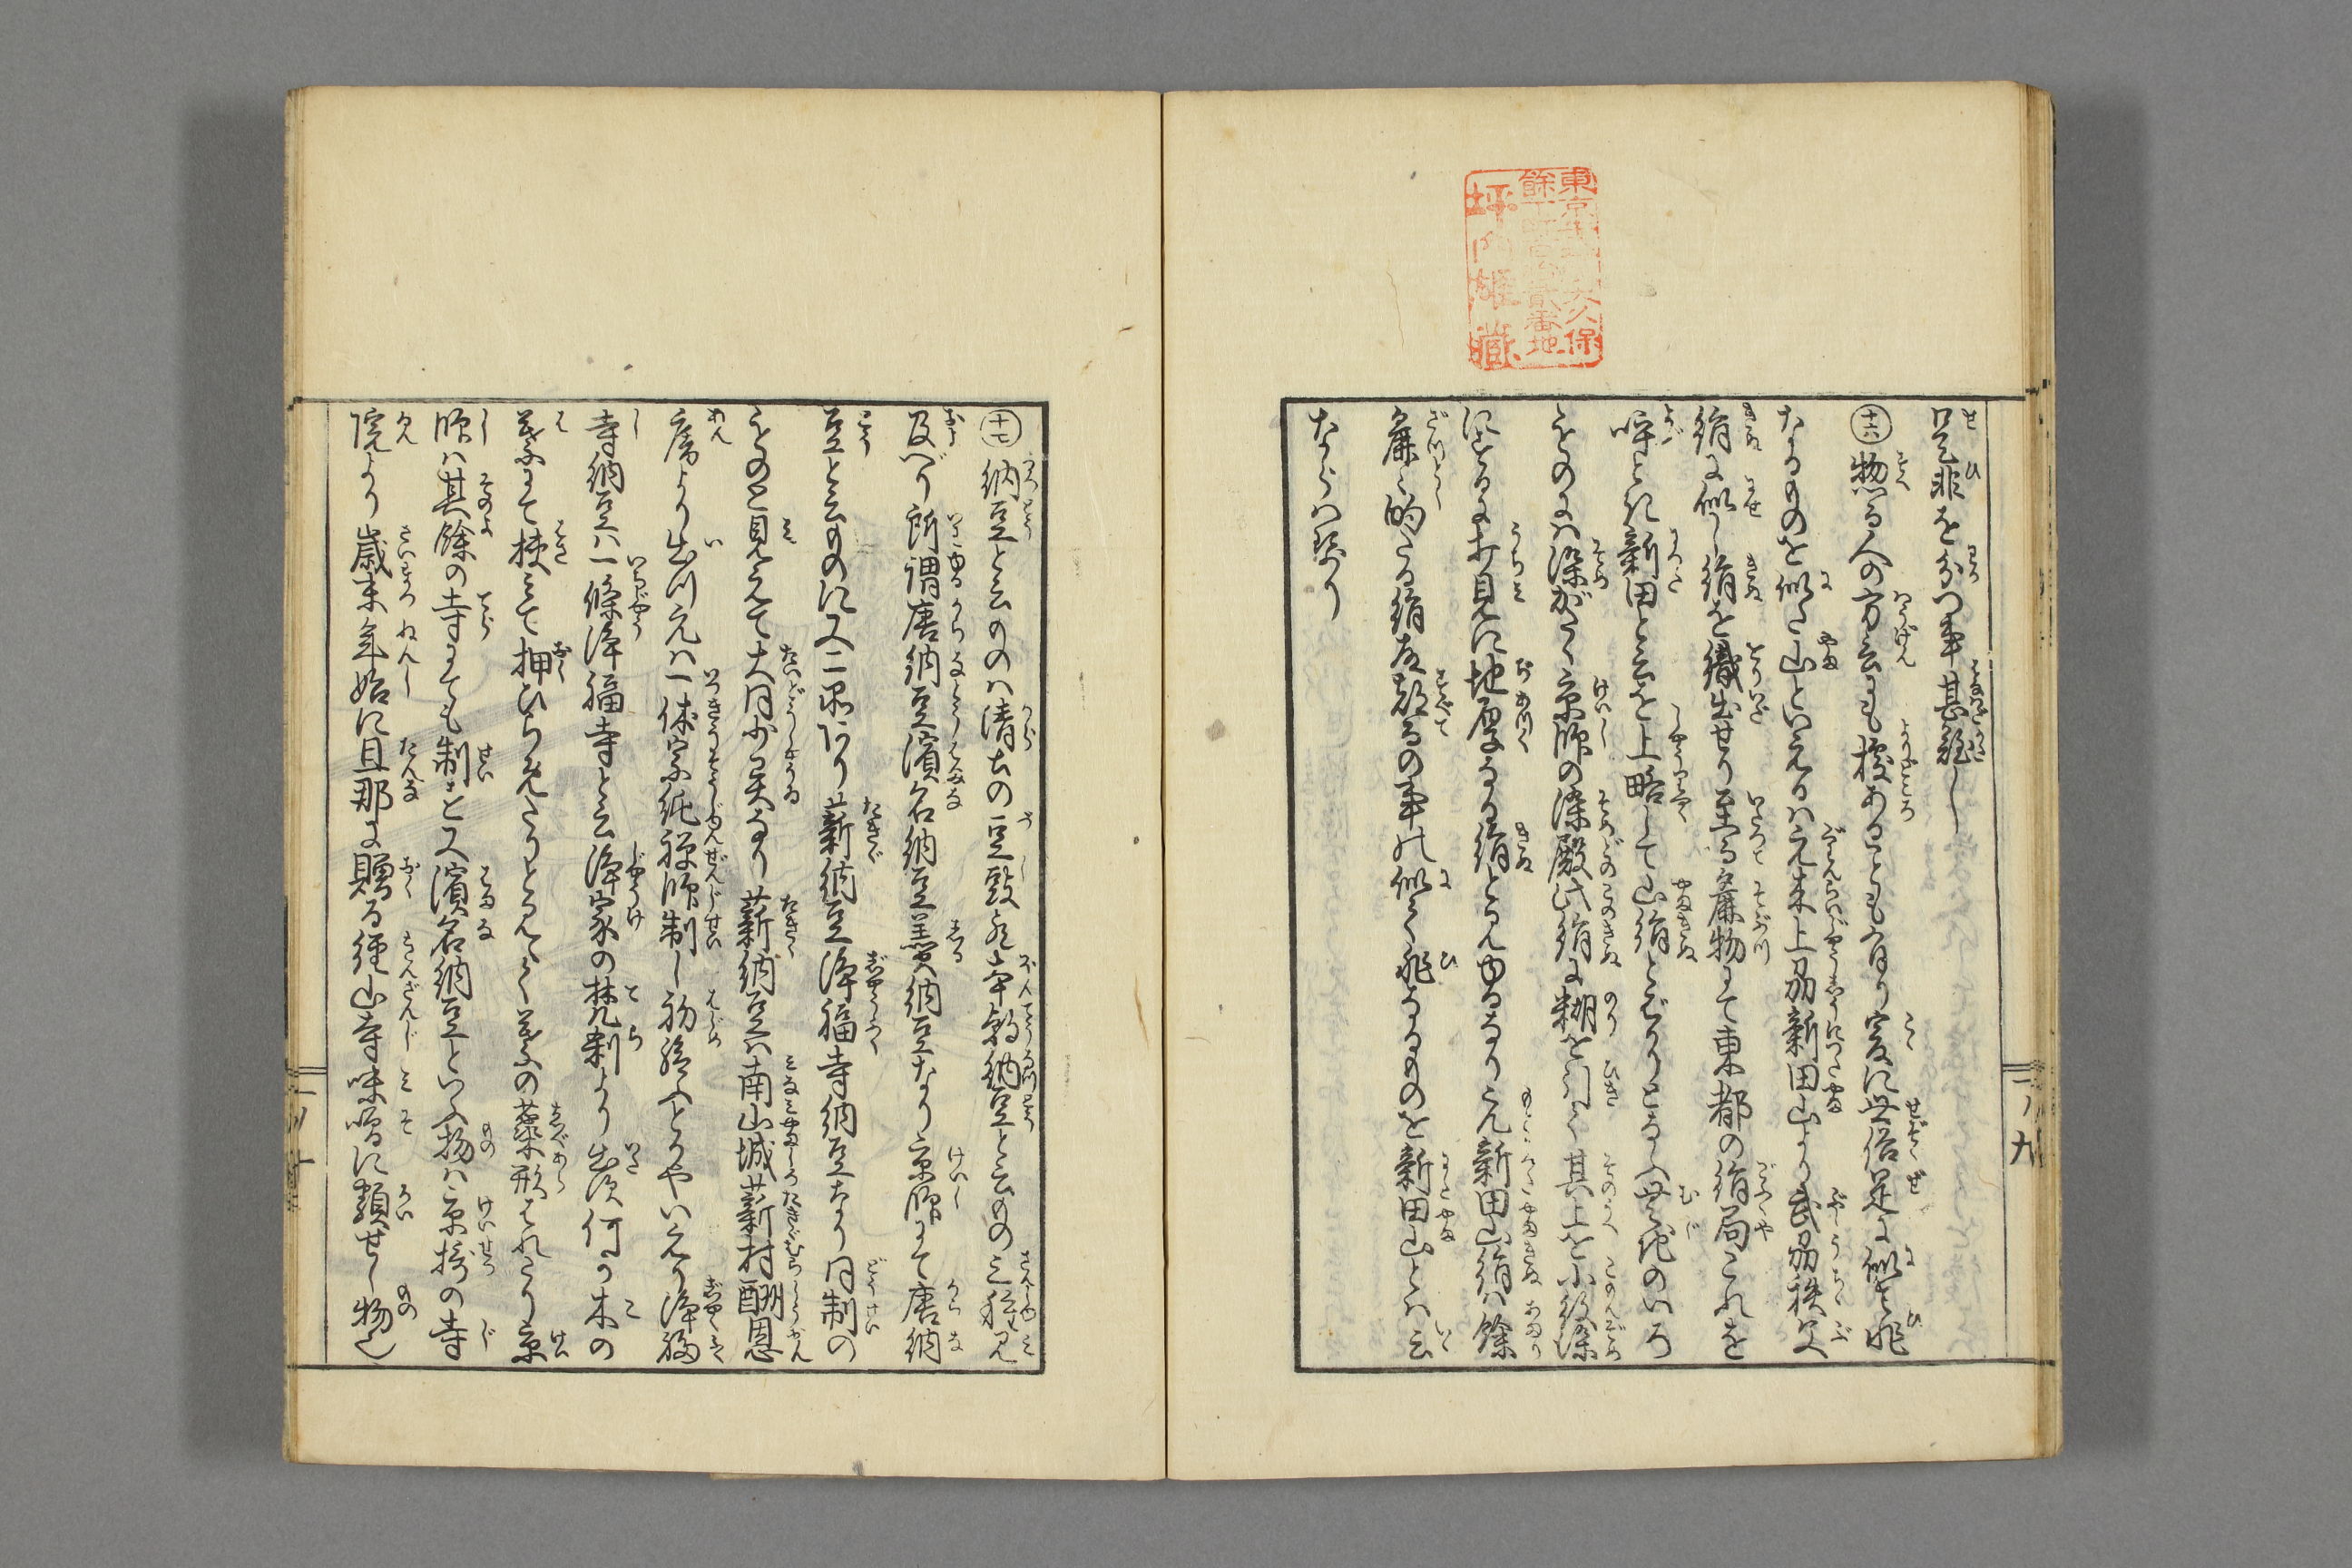 是非を分つ事甚難し
十六 惣る人の方言にも據あることも有り爰に世俗是に似て非
なるものを似た山といえるハ元来上州新田山より武州秩父
絹に似し絹を織出せり至る麁物にて東都の絹局これを
呼とき新田と云を上略して山絹とばかりとなふ無地のいろ
をものにハ染がたく京師の染殿此絹に糊を引て其上を小紋染
にするに打見に地厚なる絹と見ゆるなり元新田山絹ハ餘
麁々的たる絹故都ての事の似て非なるものを新田山とハ云
ならハせり
東京 大久保
餘丁町百 貳番地
坪内雄藏
ノ九
十七 納豆と云ものハ漢土の豆豉と本朝納豆と云もの三種に
及べり所謂唐納豆濱名納豆煮納豆なり京師にて唐納
豆と云ものに又二品あり薪納豆浄福寺納豆なり同制の
ものと見えて大同少異なり薪納豆ハ南山城薪村酬恩
庵より出川元ハ一休宗純禅師制し初給ふとかやいえり浄福
寺納豆ハ一條浄福寺と云浄家の梵刹より出須何の木の
葉にて挟みて押ひらめたりと見えて葉の蘂形はれたり京
師ハ其餘の寺にても制を又濱名納豆といふ物ハ京摂の寺
院より歳末年始に旦那に贈る径山寺味噌に類せし物也
ノ十